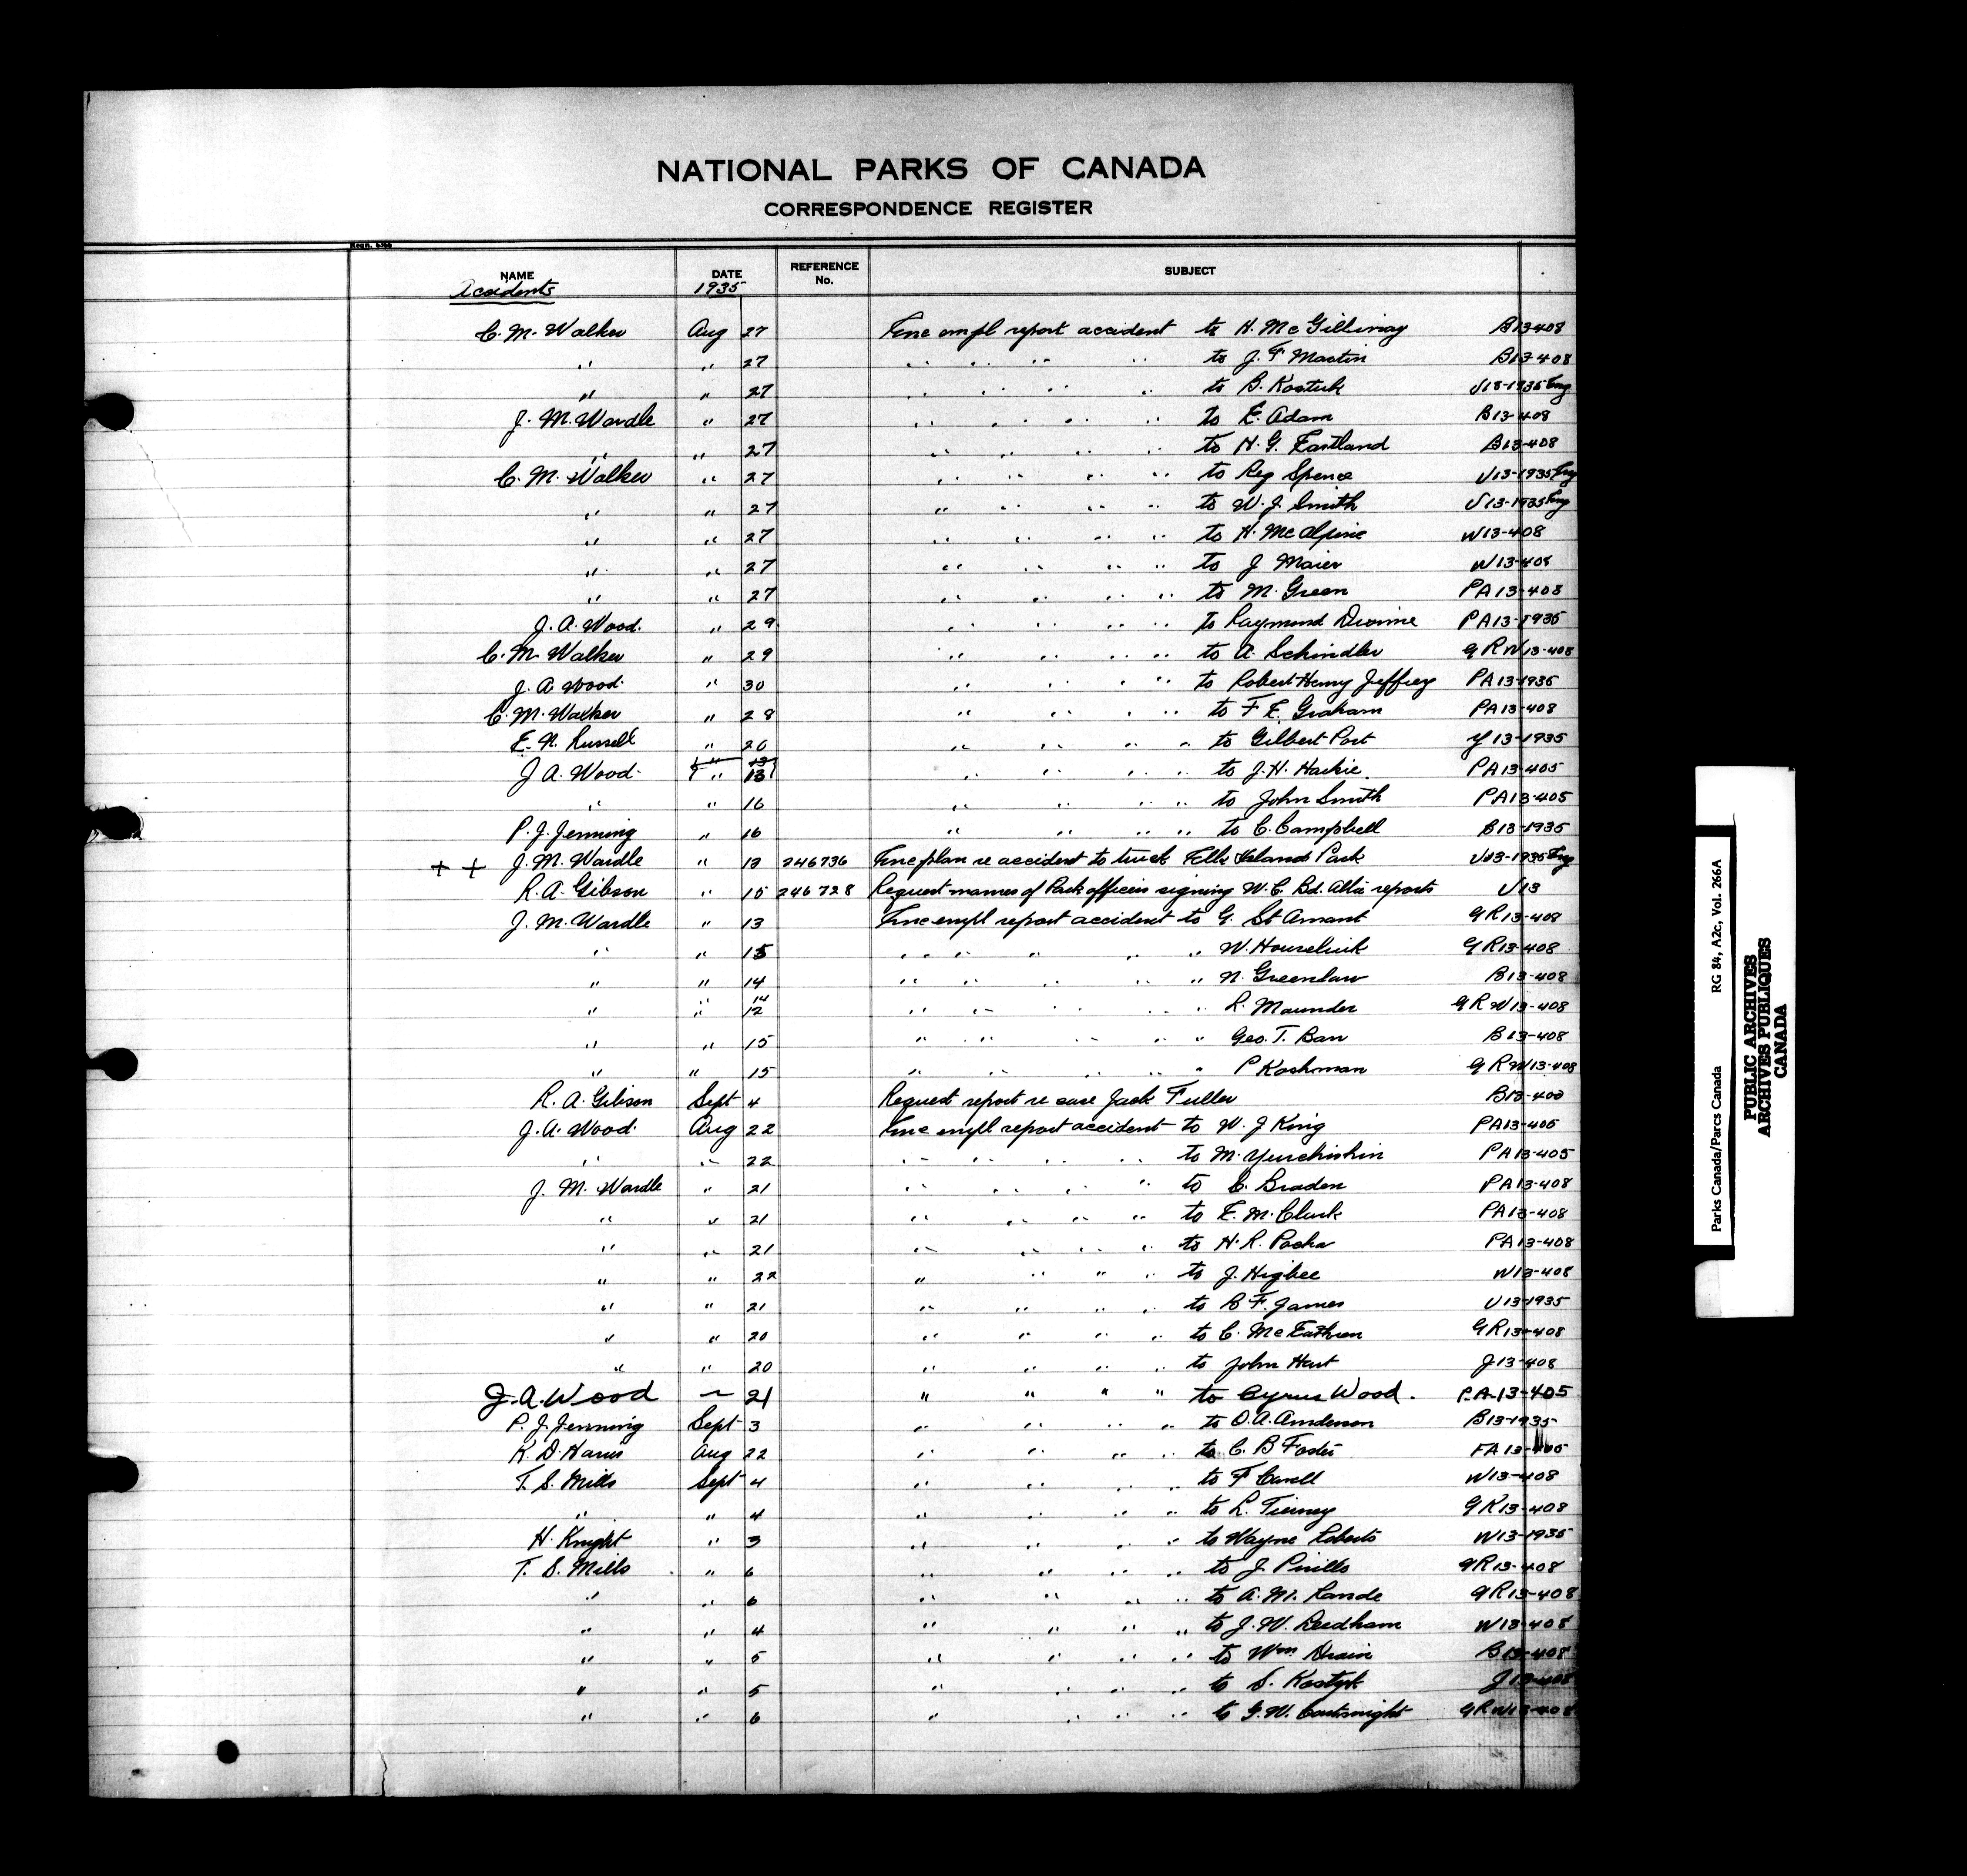 NATIONAL PARKS OF CANADA
CORRESPONDENCE REGISTER
NAME DATE REFERENCE No. SUBJECT
Accidents 1935
C. M. Walker Aug 27 empl report accident to H. McGillivray B13-408
" " 27 " " " " to J. F. Martin B13-408
" " 27 " " " " to B. Kostuk U13-1935 Eng
J. M. Wardle " 27 " " " " to E. Adam B13-408
" " 27 " " " " to H. G. Eastland B13-408
C. M. Walker " 27 " " " " to Reg Spence U13-1935 Eng
" " 27 " " " " to W. J. Smith U13-1935 Eng
" " 27 " " " " to H. McAlpine W13-408
" " 27 " " " " to J Maier W13-408
" " 27 " " " " to M. Green PA13-408
J. A. Wood. " 29 " " " " to Raymond PA13-1935
C. M. Walker " 29 " " " " to A. Schindler GRW13-408
J. A Wood. " 30 " " " " to Robert Henry Jeffrey PA13-1935
C. M. Walker " 28 " " " " to F E. Graham PA13-408
E. N. Russell " 26 " " " " to Gilbert Port Y13-1935
J A. Wood. " 13 " " " " to J. H. PA13-405
" " 16 " " " " to John Smith PA13-405
P. J. Jenning " 16 " " " " to C. Campbell B13-1935
+ + J. M. Wardle " 13 246736 plan re accident to truck Elk Island Park U13-1935 Eng
R. A. Gibson " 15 246728 Request names of Park officers signing W. C. Bd. Alta reports U13
J. M. Wardle " 13 empl report accident to G. St Amant GR13-408
" " 15 " " " " " W. GR13-408
" " 14 " " " " " N. Greenlaw B13-408
" " 14 12 " " " " " R. Maunder GRW13-408
" " 15 " " " " " Geo. T. Ban B13-408
" " 15 " " " " " P Kashman GRW13-408
R. A. Gibson Sept 4 Request report re case Jack Fuller B13-
J. A. Wood. Aug 22 empl report accident to W. J King PA13-405
" " 22 " " " " to M. PA13-405
J. M. Wardle " 21 " " " " to C. Braden PA13-408
" " 21 " " " " to E. M. Cluck PA13-408
" " 21 " " " " to H. R. Pocha PA13-408
" " 22 " " " " to J. Higbee W13-408
" " 21 " " " " to B F. James U13-1935
" " 20 " " " " to C. McEathron GR13-408
" " 20 " " " " to John Hart J13-408
J. A. Wood " 21 " " " " to Cyrus Wood. P.A-13-405
P. J. Jenning Sept 3 " " " " to O. A. Anderson B13-1935
K. D. Harris Aug 22 " " " " to C. B Foster 13-405
T. S. Mills Sept 4 " " " " to F Carell W13-408
" " 4 " " " " to R. Tierney GR13-408
H. Knight " 3 " " " " to Wayne Roberts W13-1935
T. S. Mills " 6 " " " " to J GR13-408
" " 6 " " " " to A. M. Rande GR13-408
" " 4 " " " " to J. W. Reedham W13-408
" " 5 " " " " to Wm. Drain B13-408
" " 5 " " " " to S. Kostyk J13-408
" " 6 " " " " to G. W. Cartwright GRW13-408
Parks Canada/Parcs Canada RG 84, A2c, Vol. 266A
PUBLIC ARCHIVES
ARCHIVES PUBLIQUES
CANADA